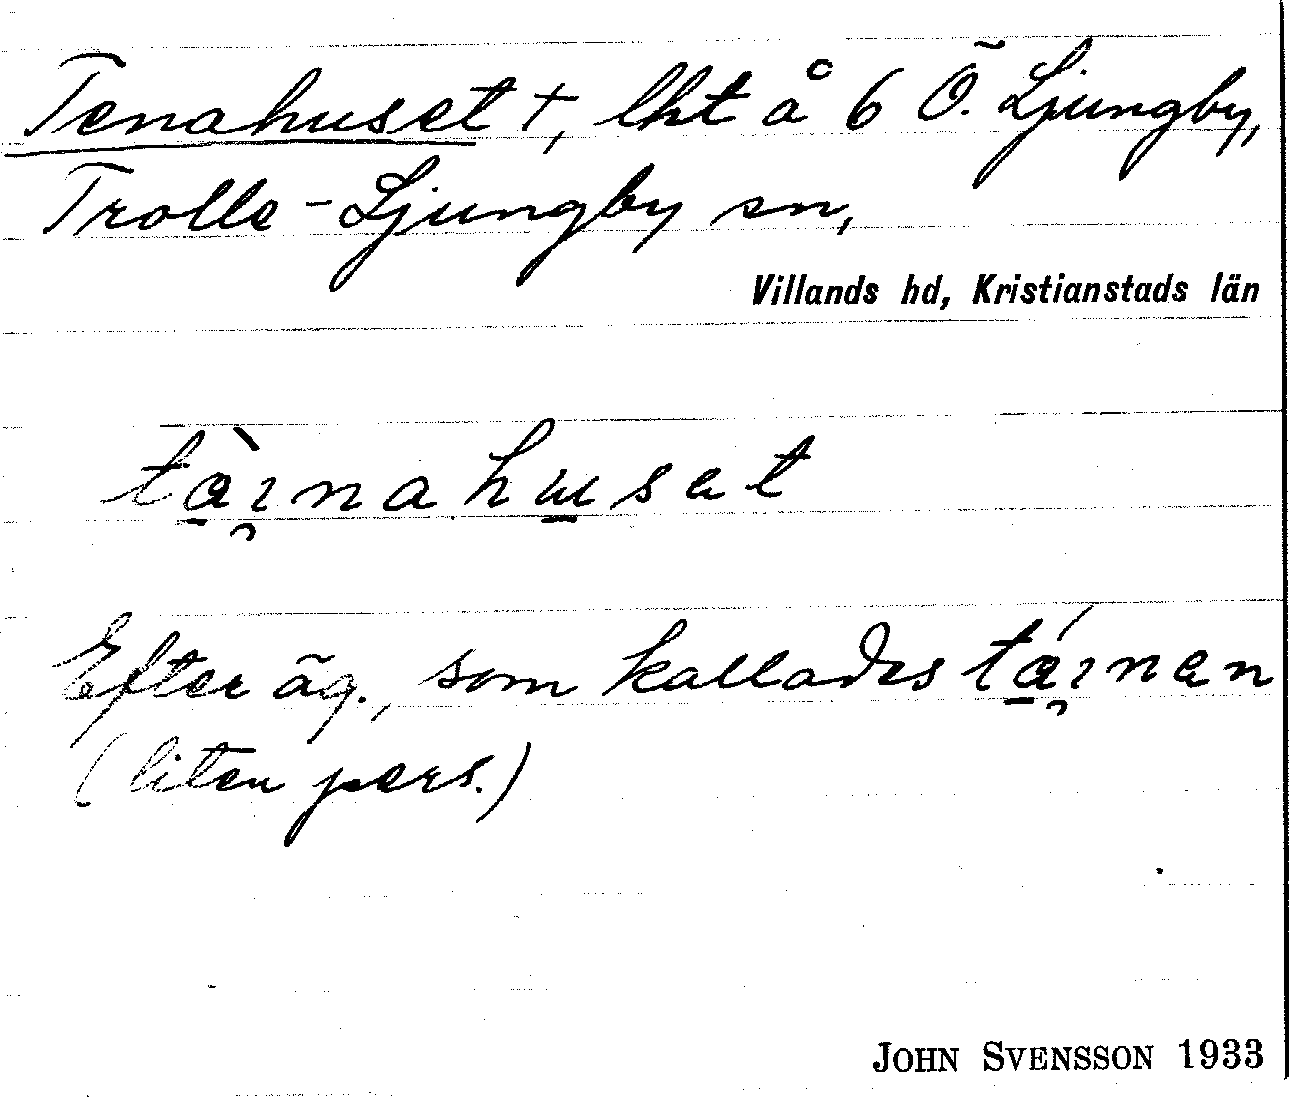 Tenahuset †, lht å 6 Ö. Ljungby,
Trolle-Ljungby sn,
Villands hd, Kristianstads län
tæ̠̀ɪ̯nahu̠sət
Efter äg., som kallades tǽ̠ɪ̯nən
(liten pers.)
JOHN SVENSSON 1933